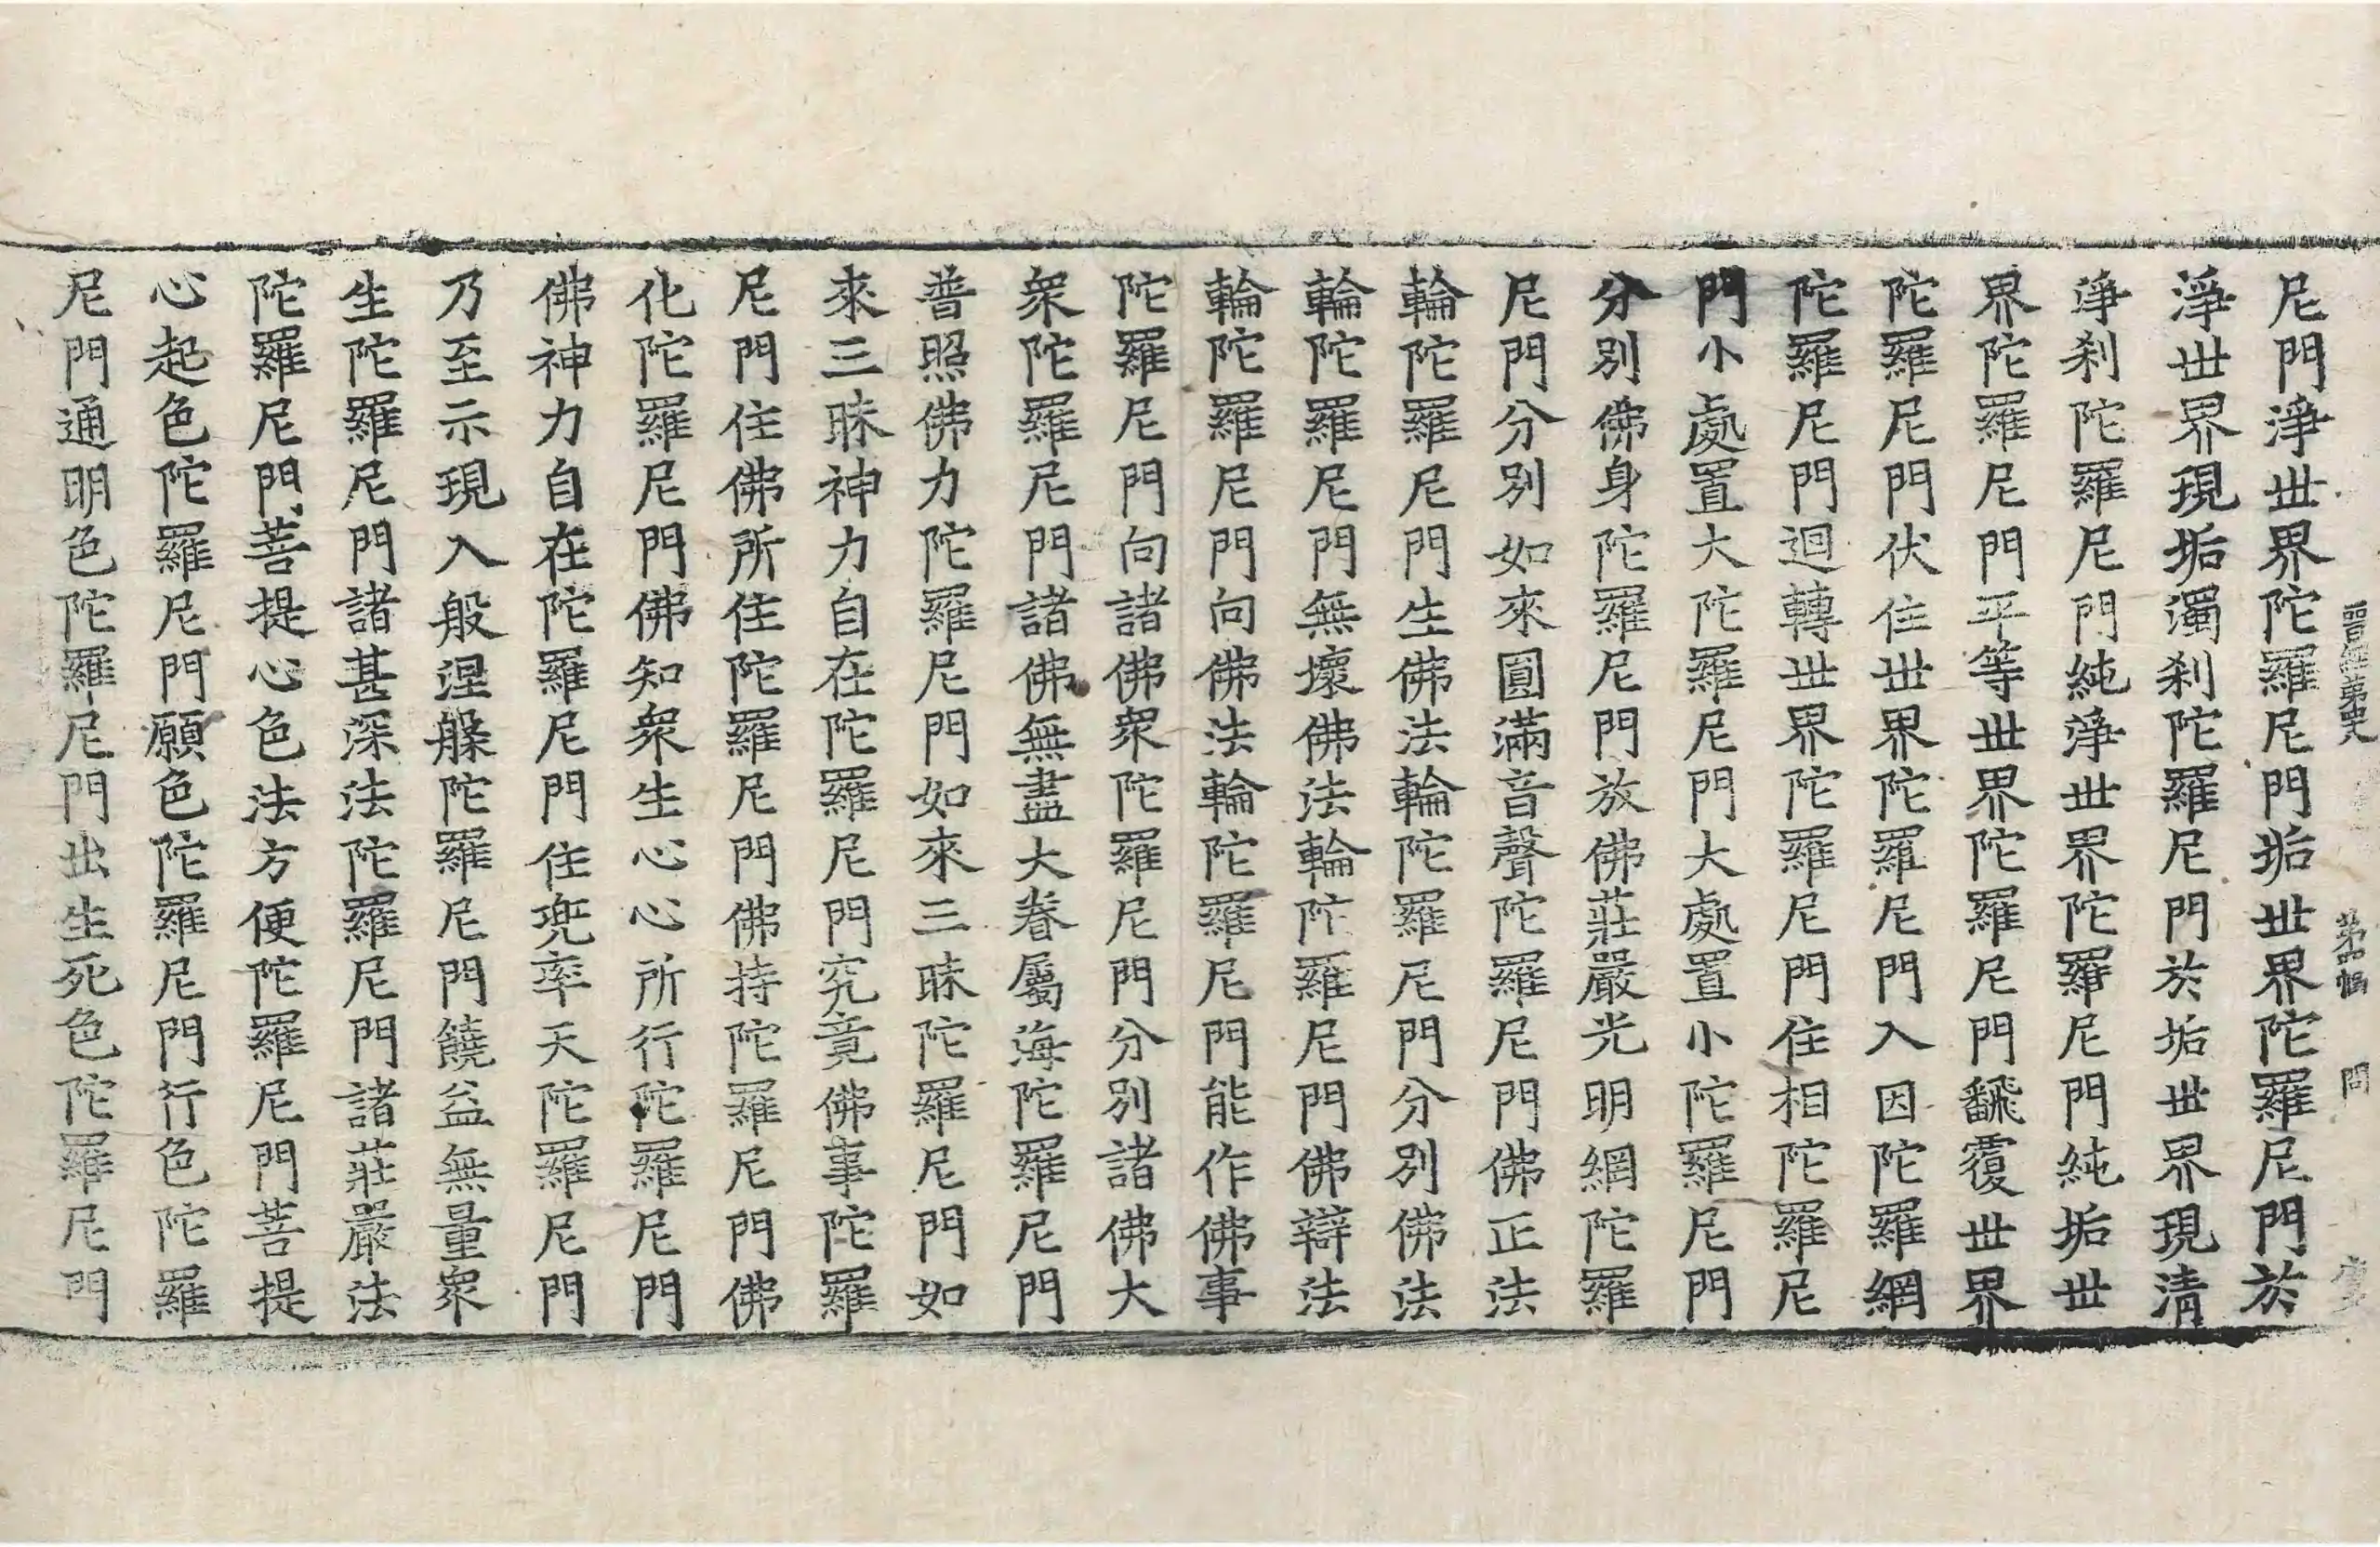 晋經第 第四幅 問
尼門淨世界陀羅尼門垢世界陀羅尼門於
淨世界現垢濁刹陀羅尼門於垢世界現清
淨刹陀羅尼門純淨世界陀羅尼門純垢世
界陀羅尼門平等世界陀羅尼門飜覆世界
陀羅尼門伏住世界陀羅尼門入因陀羅網
陀羅尼門迴轉世界陀羅尼門住相陀羅尼
門小處置大陀羅尼門大處置小陀羅尼門
分別佛身陀羅尼門放佛莊嚴光明網陀羅
尼門分別如來圓滿音聲陀羅尼門佛正法
輪陀羅尼門生佛法輪陀羅尼門分別佛法
輪陀羅尼門無壞佛法輪陀羅尼門佛辯法
輪陀羅尼門向佛法輪陀羅尼門能作佛事
陀羅尼門向諸佛眾陀羅尼門分別諸佛大
眾陀羅尼門諸佛無盡大眷屬海陀羅尼門
普照佛力陀羅尼門如來三昧陀羅尼門如
來三昧神力自在陀羅尼門究竟佛事陀羅
尼門住佛所住陀羅尼門佛持陀羅尼門佛
化陀羅尼門佛知眾生心心所行陀羅尼門
佛神力自在陀羅尼門住兜率天陀羅尼門
乃至示現入般涅槃陀羅尼門饒益無量眾
生陀羅尼門諸甚深法陀羅尼門諸莊嚴法
陀羅尼門菩提心色法方便陀羅尼門菩提
心起色陀羅尼門願色陀羅尼門行色陀羅
尼門通明色陀羅尼門出生死色陀羅尼門